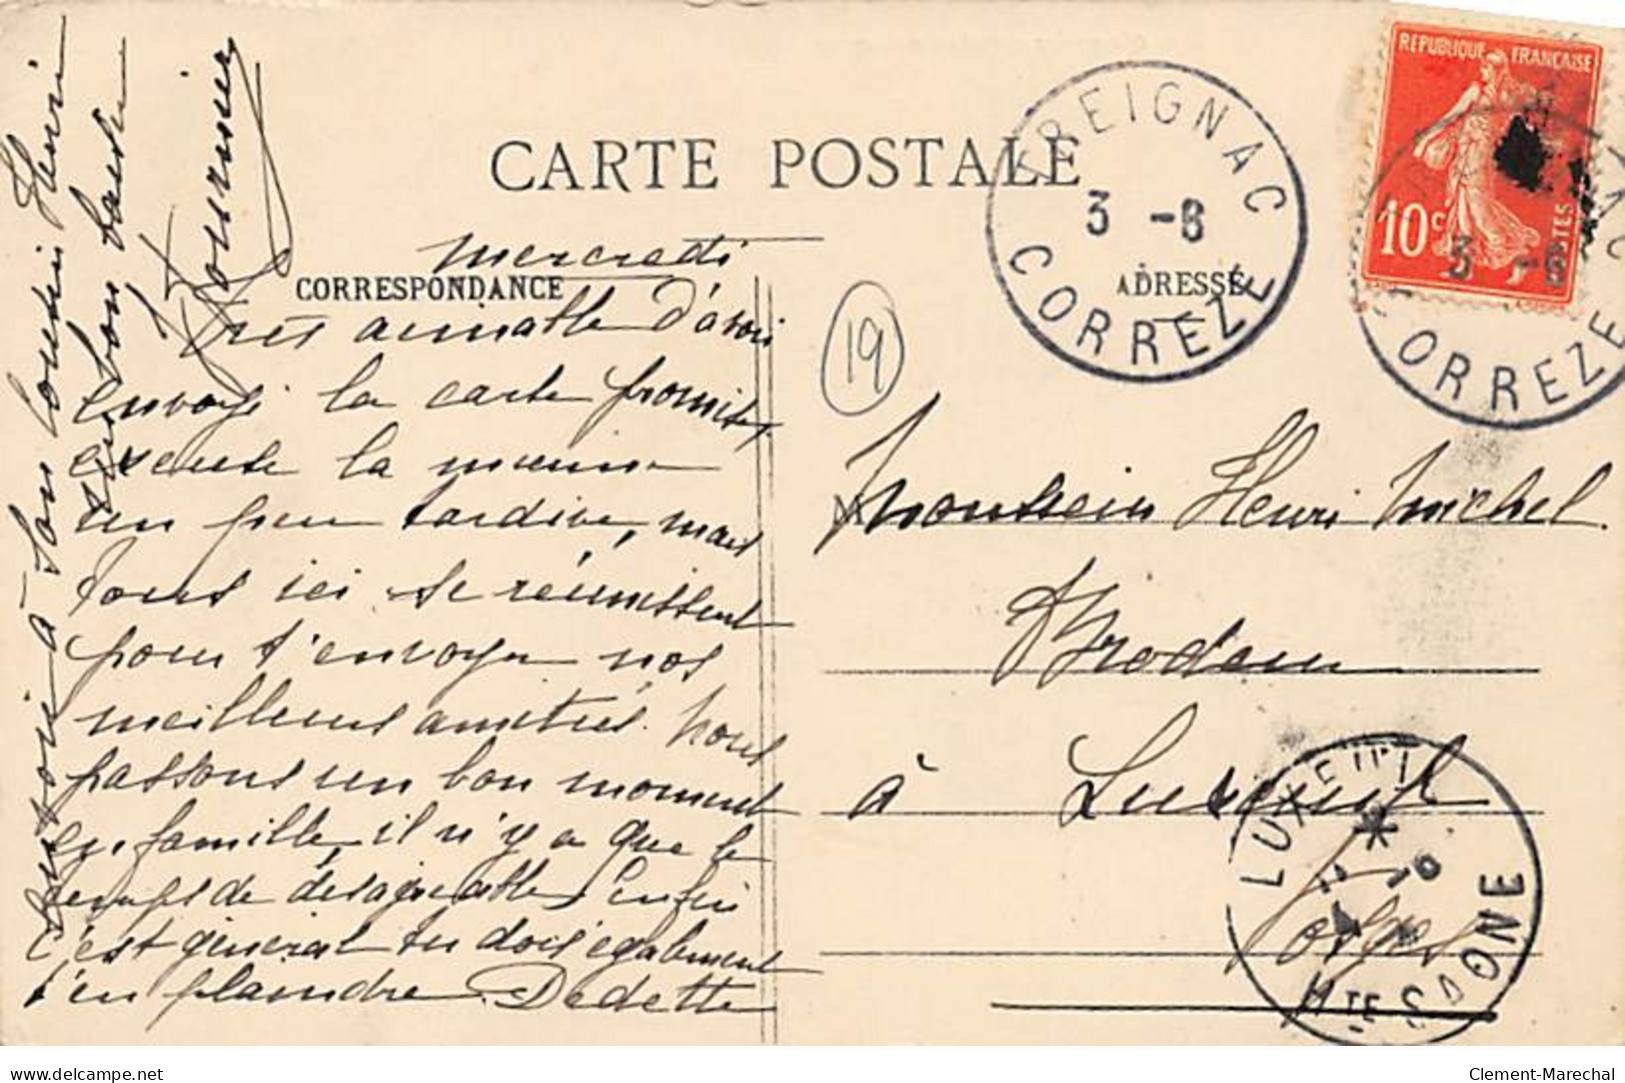 CARTE POSTALE
CORRESPONDANCE
ADRESSE
REPUBLIQUE FRANÇAISE
10c
TREIGNAC
3 -6
CORREZE
3 -6
CORREZE
19
mercredi
Très aimable d'avoir
envoyé la carte promise,
excuse la mienne
un peu tardive, mais
tous ici se réunissent
pour t'envoyer nos
meilleures amitiés. Nous
passons un bon moment
en famille, il n'y a que le
temps de désagréable, enfin
c'est général tu dois également
t'en plaindre. Dedette
à son cousin Henri
un bon
Monsieur Henri Michel
à Luxeuil
Vosges
LUXEUIL
HTE SAONE
Clement-Marechal
www.delcampe.net